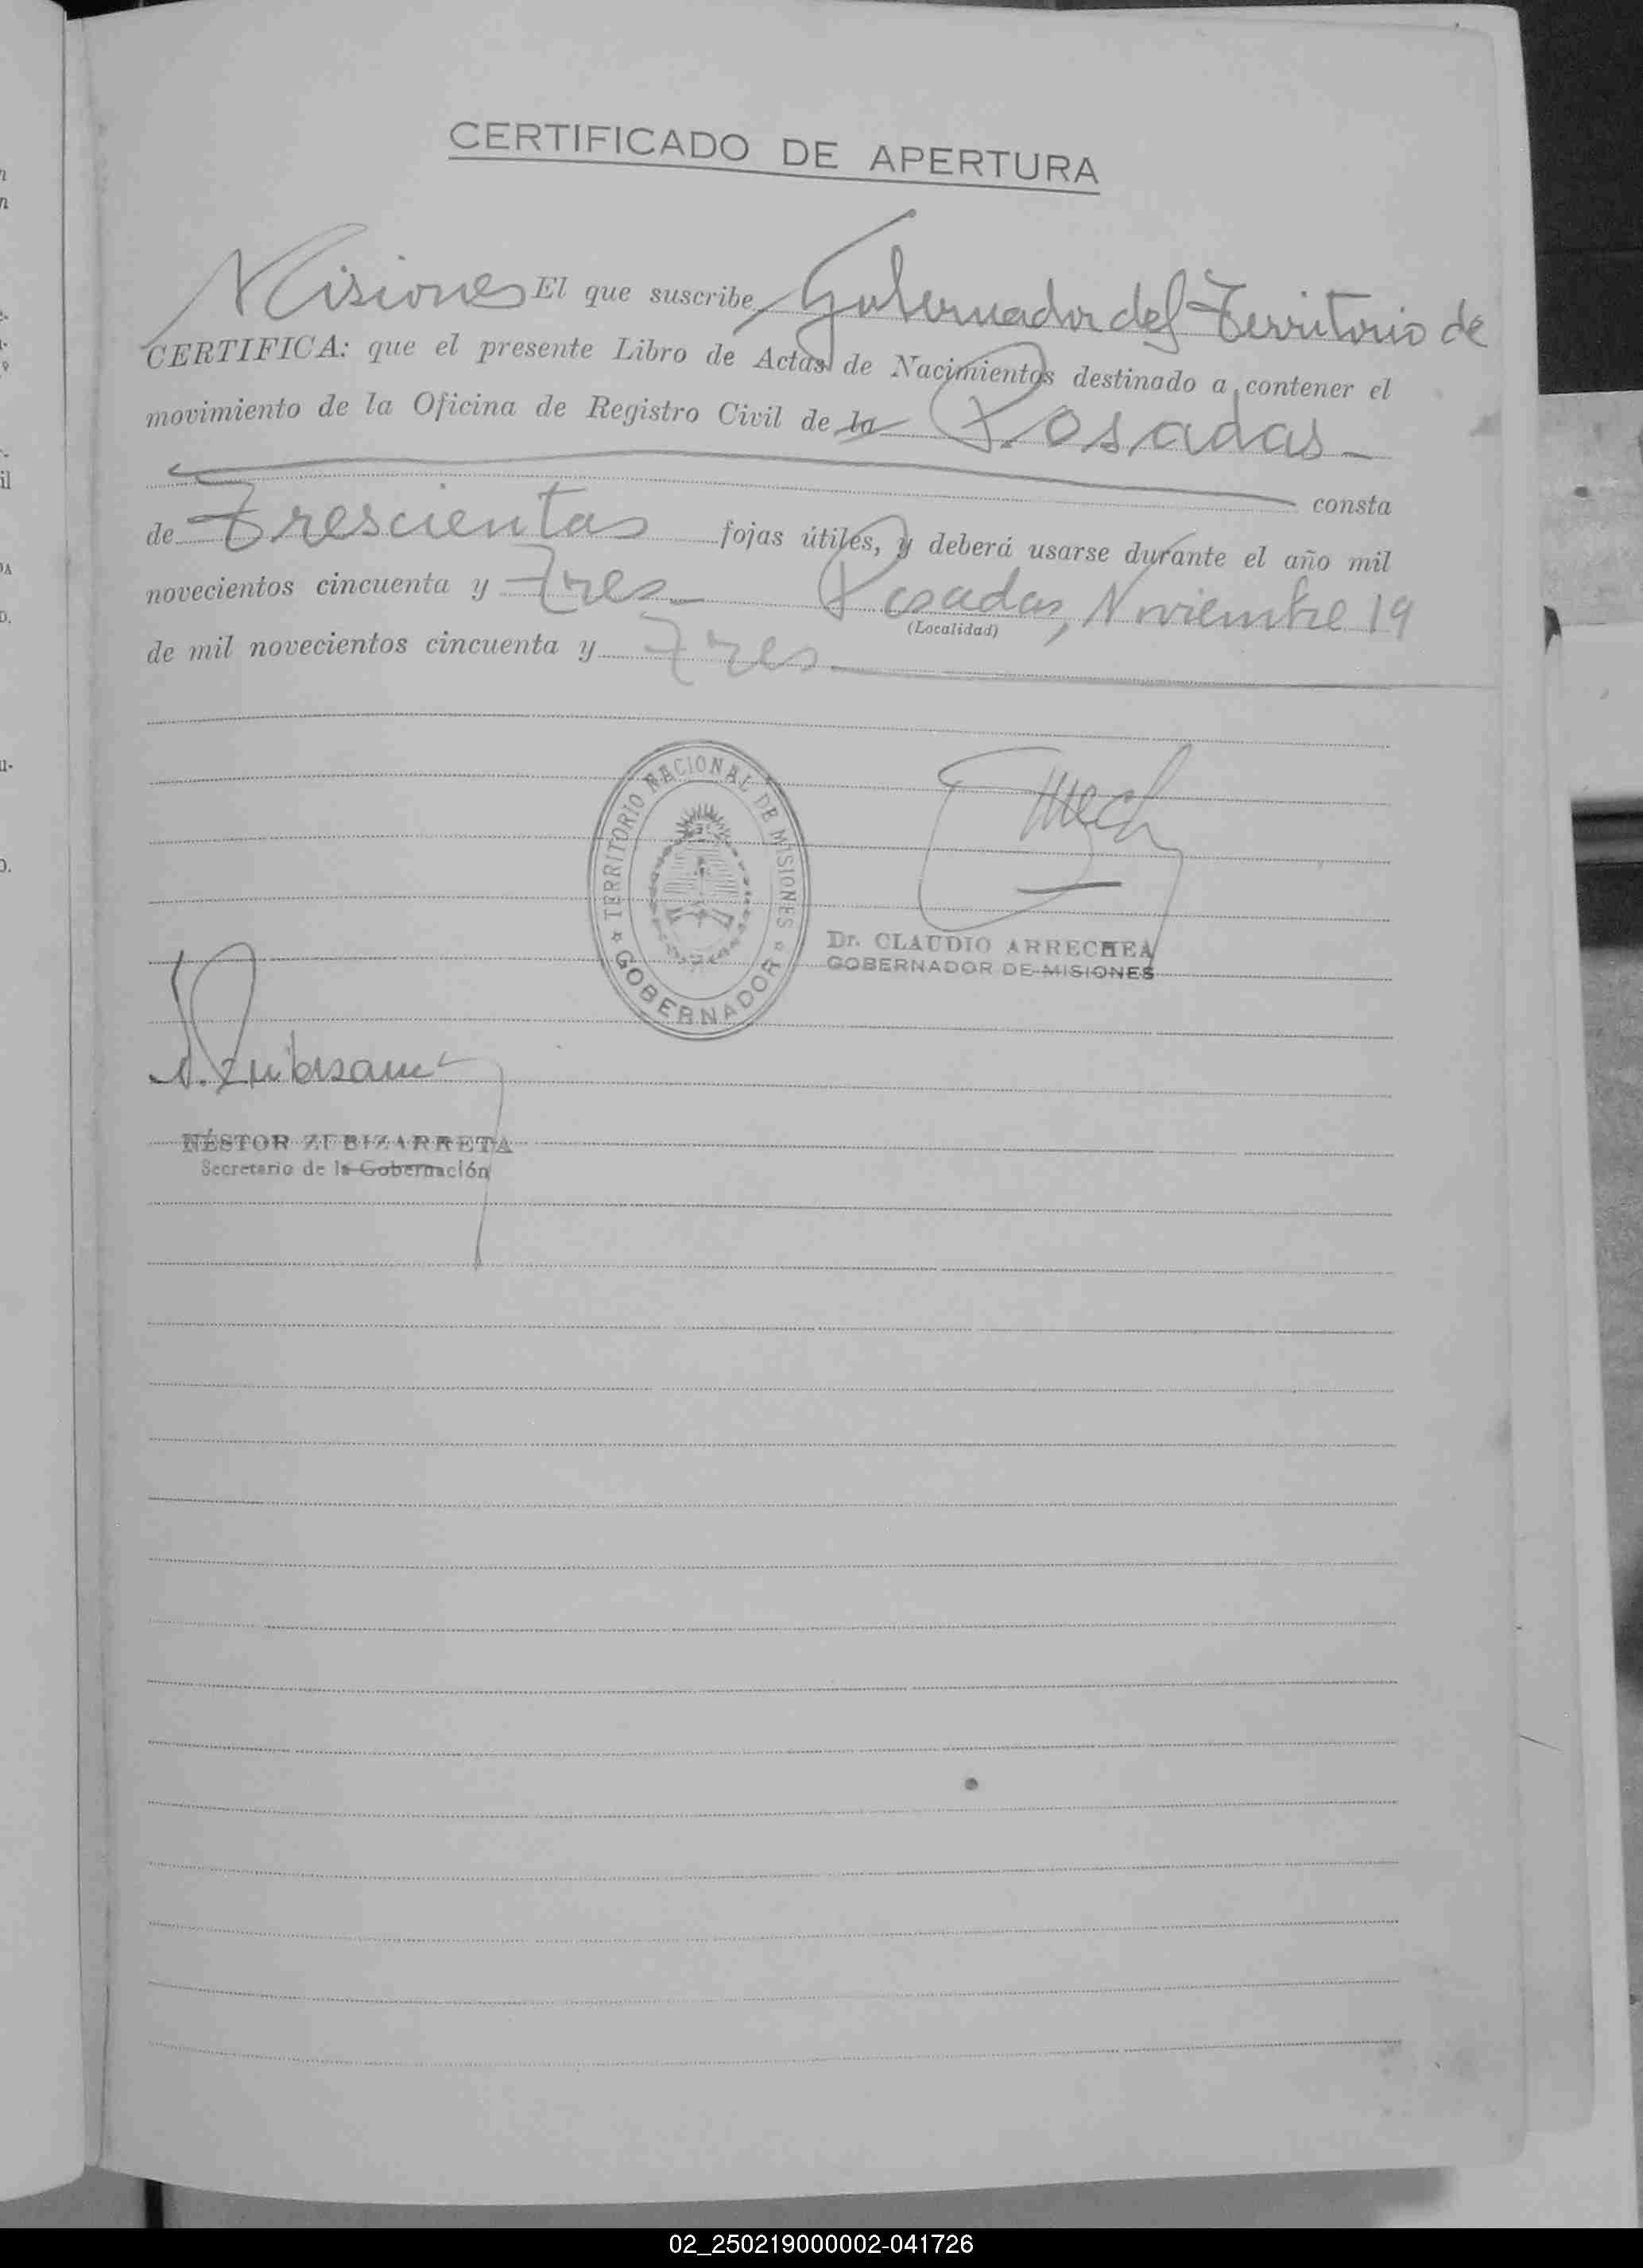 CERTIFICADO DE APERTURA
El que suscribe Gobernador del Territorio de
Misiones
CERTIFICA: que el presente Libro de Actas de Nacimientos destinado a contener el
movimiento de la Oficina de Registro Civil de la Posadas
consta
de Trescientas fojas útiles, y deberá usarse durante el año mil
novecientos cincuenta y tres Posadas, Noviembre 19
(Localidad)
de mil novecientos cincuenta y Tres
TERRITORIO NACIONAL DE MISIONES
GOBERNADOR
Dr. CLAUDIO ARRECHEA
GOBERNADOR DE MISIONES
NÉSTOR ZUBIZARRETA
Secretario de la Gobernación
02_250219000002-041726